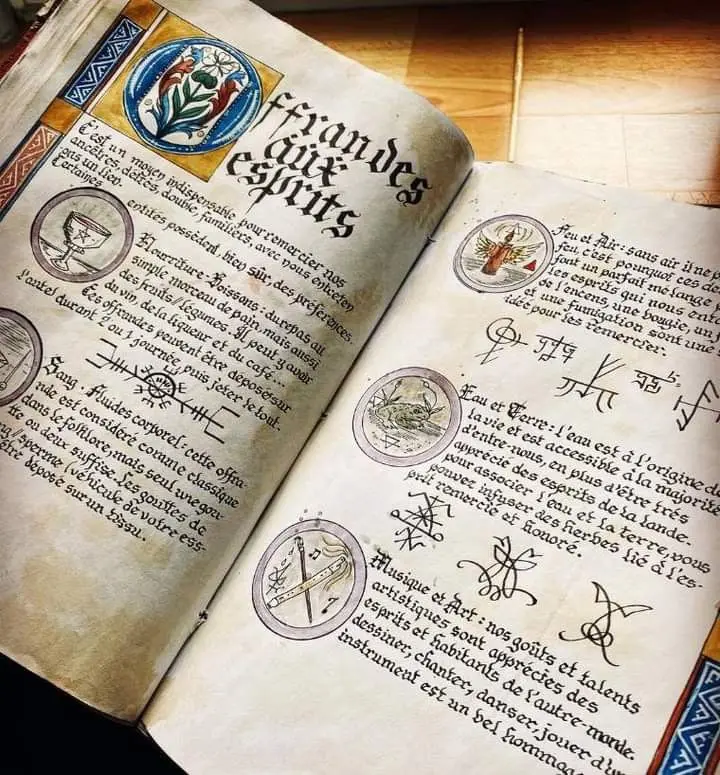 Offrandes
aux
esprits
C'est un moyen indispensable pour remercier nos
ancêtres, déités, double, familiers, avec nous entretenons un lien.
Certaines entités possèdent, bien sûr, des préférences.
Nourriture - Boissons : du repas au
simple morceau de pain, mais aussi
des fruits // légumes. Il peut y avoir
du vin, de la liqueur et du café...
Ces offrandes peuvent être déposé sur
l'autel durant 2 ou 1 journée puis jeter le tout.
Sang - Fluides corporel : cette offran-
de est considéré comme classique
dans le folklore, mais seul une gou-
tte ou deux suffise. Les gouttes de
sperme (véhicule de votre ess-
être déposé sur un tissu.
Feu et Air : sans air il ne
feu, c'est pourquoi ces
font un parfait mélange
les esprits qui nous
de l'encens, une bougie, un
et une fumigation sont une
idée pour les remercier.
Eau et Terre : l'eau est à l'origine de
la vie et est accessible à la majorité
d'entre-nous, en plus d'être très
apprécié des esprits de la lande.
pour associer l'eau et la terre, vous
pouvez infuser des herbes lié à l'es-
prit remercié et honoré.
Musique et Art : nos goûts et talents
artistiques sont appréciés des
esprits et habitants de l'autre-monde.
dessiner, chanter, danser, jouer d'un
instrument est un bel hommage